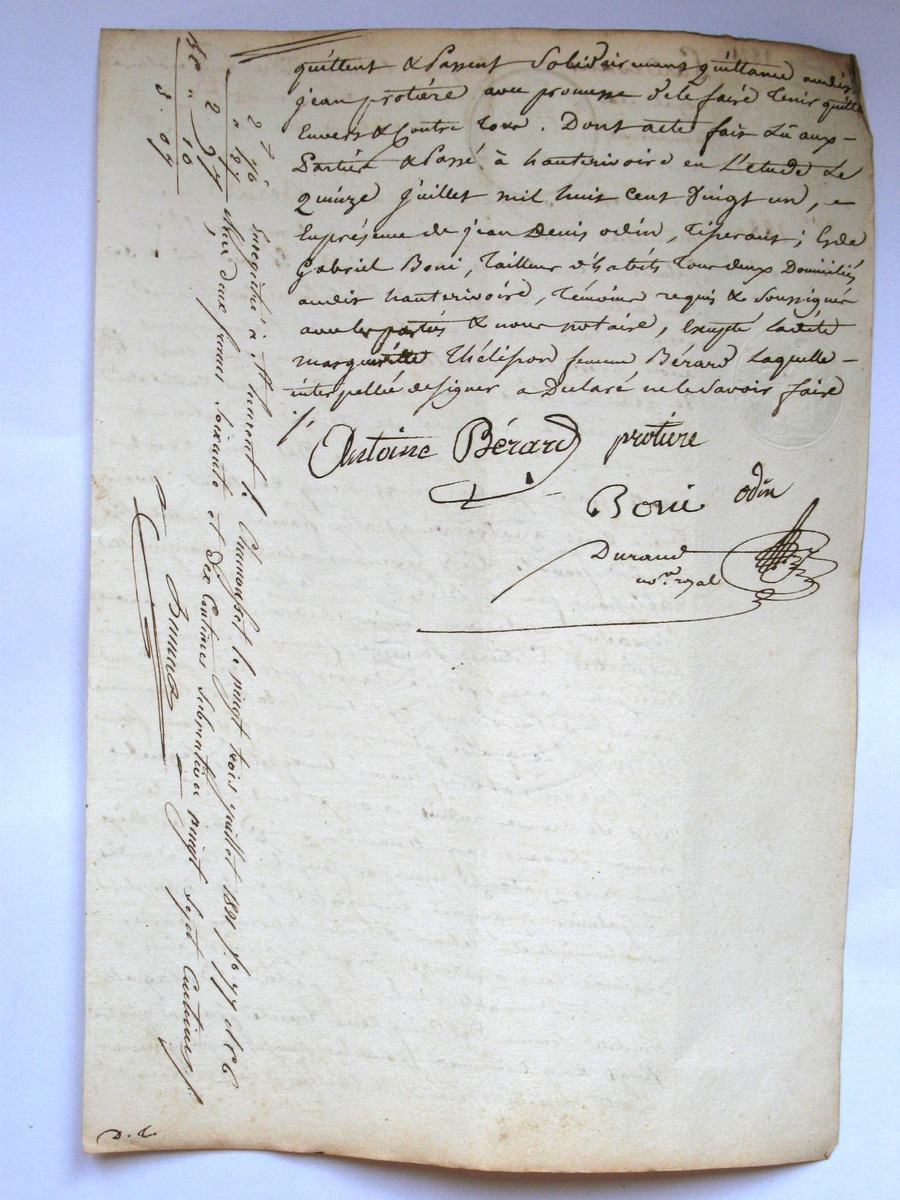 quittent & Passent Solidairement quittance audit
jean protière avec promesse de le faire tenir quitte
Envers & Contre tous. Dont acte fait Lû aux-
Parties & Passé à hauterivoire en L'etude Le
Quinze juillet mil huit cent Vingt un, e
En présence de jean Denis odin, tisserant; & de
Gabriel Boni, tailleur d'habits tous deux Domiciliés
audit hauterivoire, témoins requis & Soussignés
avec les parties & nous notaire, Excepté ladite
margueritte thélisson femme Bérard Laquelle -
interpellée de signer a Déclaré ne le Savoir faire
Antoine Bérard protiere
Boni odin
Durand
no.re royal
2 70
27
2 97
10
3. 07
Enregistré à St laurent de Chamousset le vingt trois juillet 1821 f.o 77 r.o C 6
reçu deux francs Soixante et dix Centimes Subvention vingt Sept Centimes
D. L